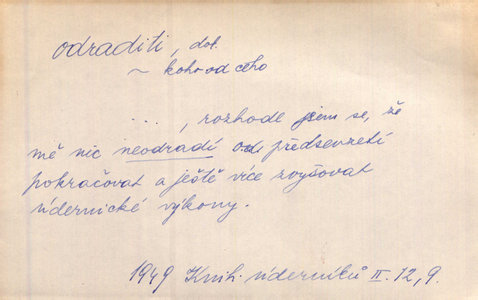 odraditi, dok.
~ koho od čeho
..., rozhodl jsem se, že
mě nic neodradí od předsevzetí
pokračovat a ještě více zvyšovat
údernické výkony.
1949 Knih. úderníků II. 12, 9.